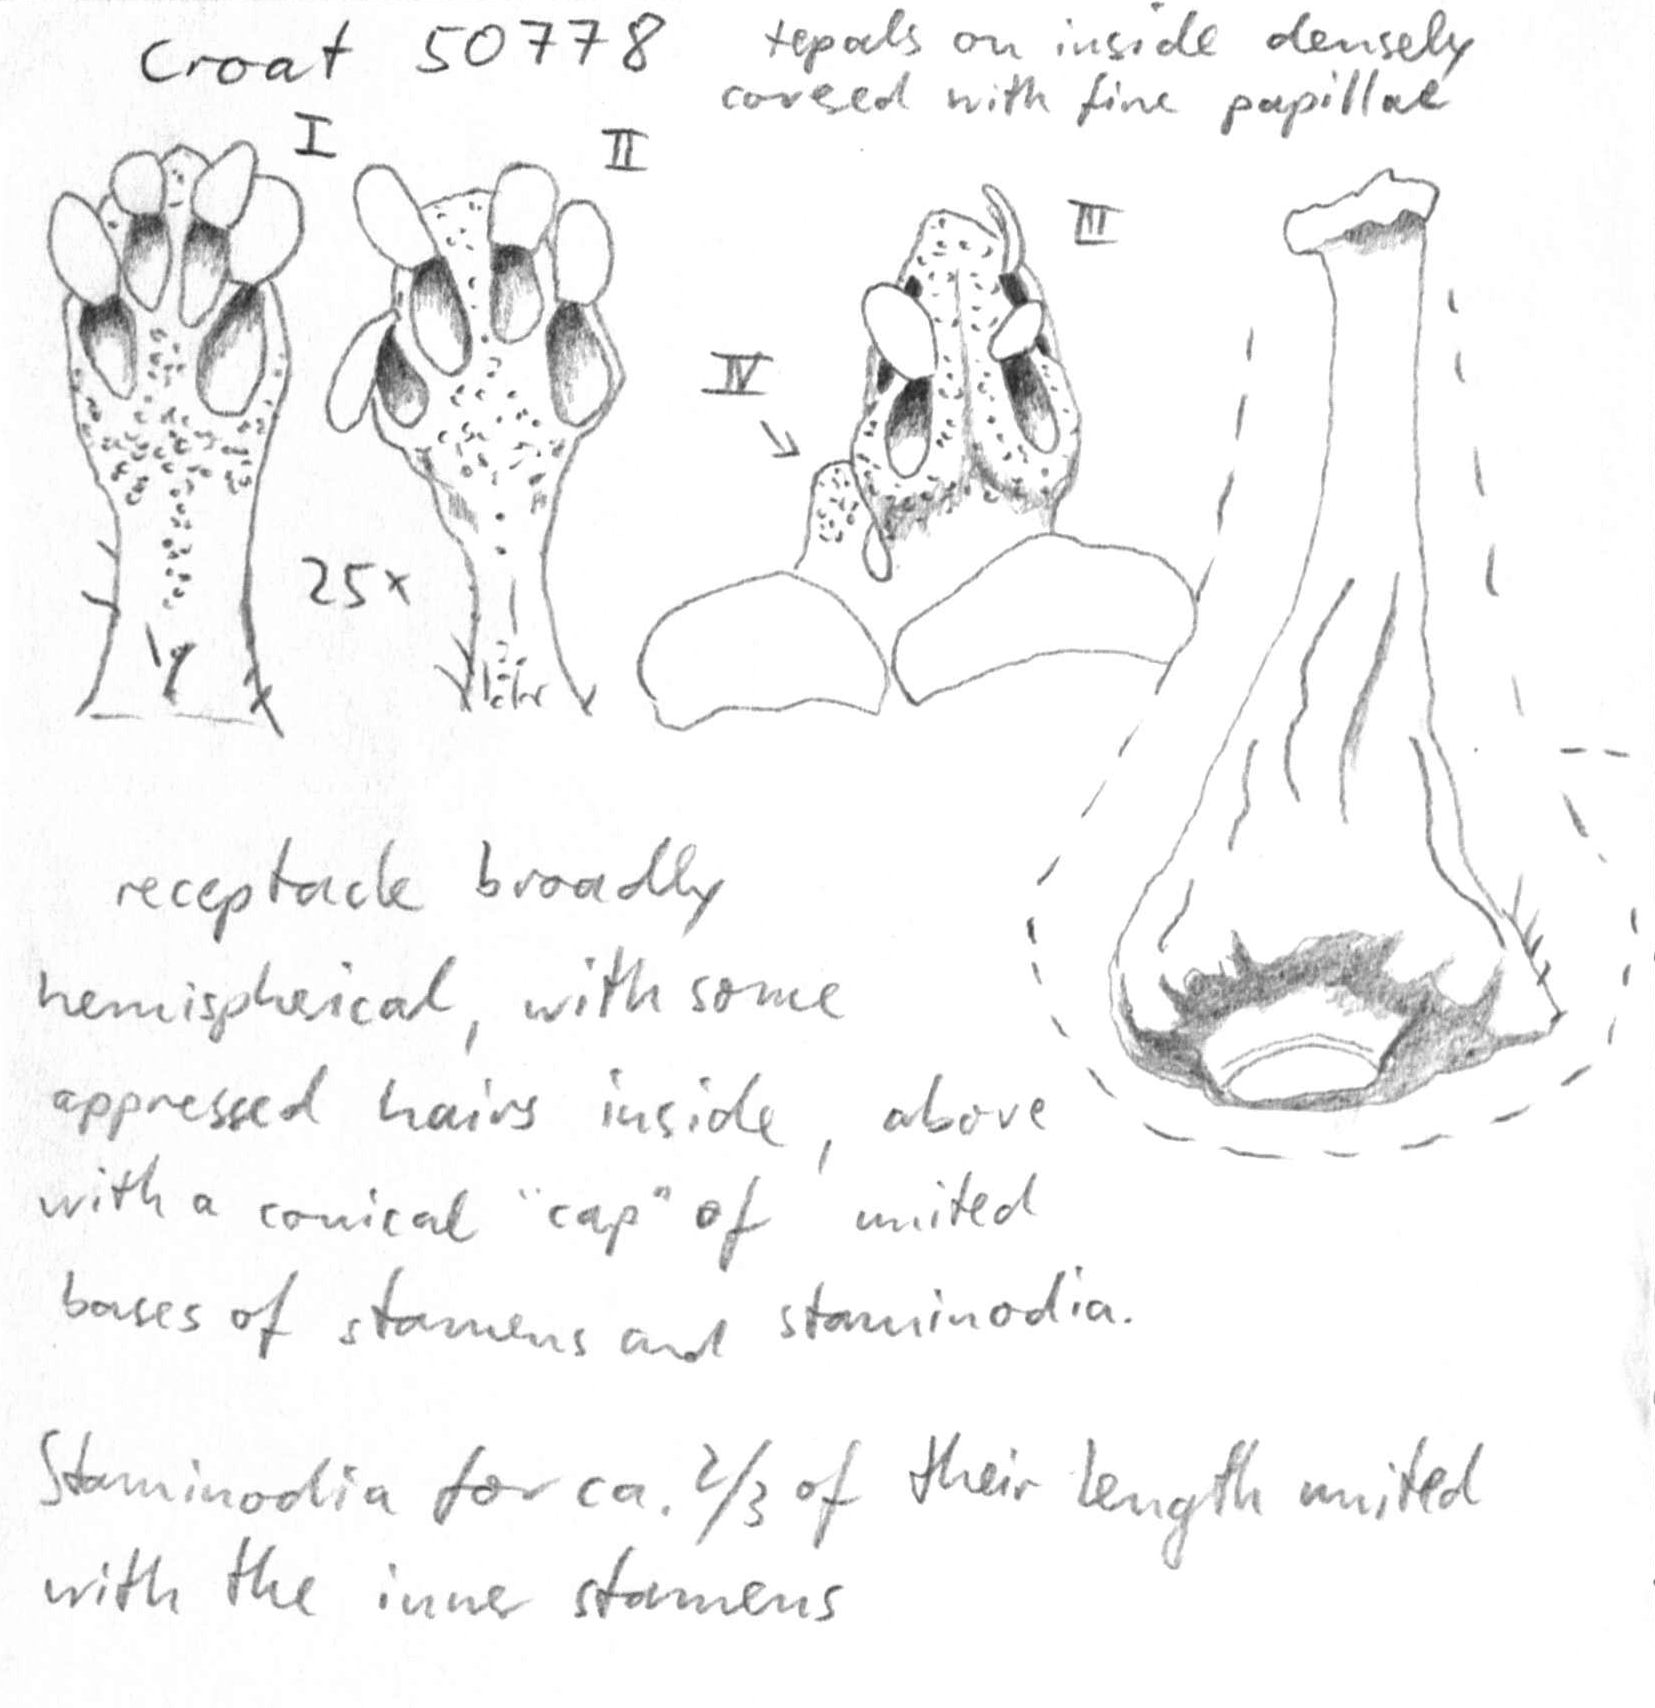 Croat 50778
tepals on inside densely
covered with fine papillae
I
II
III
IV
25x
receptacle broadly
hemispherical, with some
appressed hairs inside, above
with a conical "cap" of united
bases of stamens and staminodia.
Staminodia for ca. 2/3 of their length united
with the inner stamens